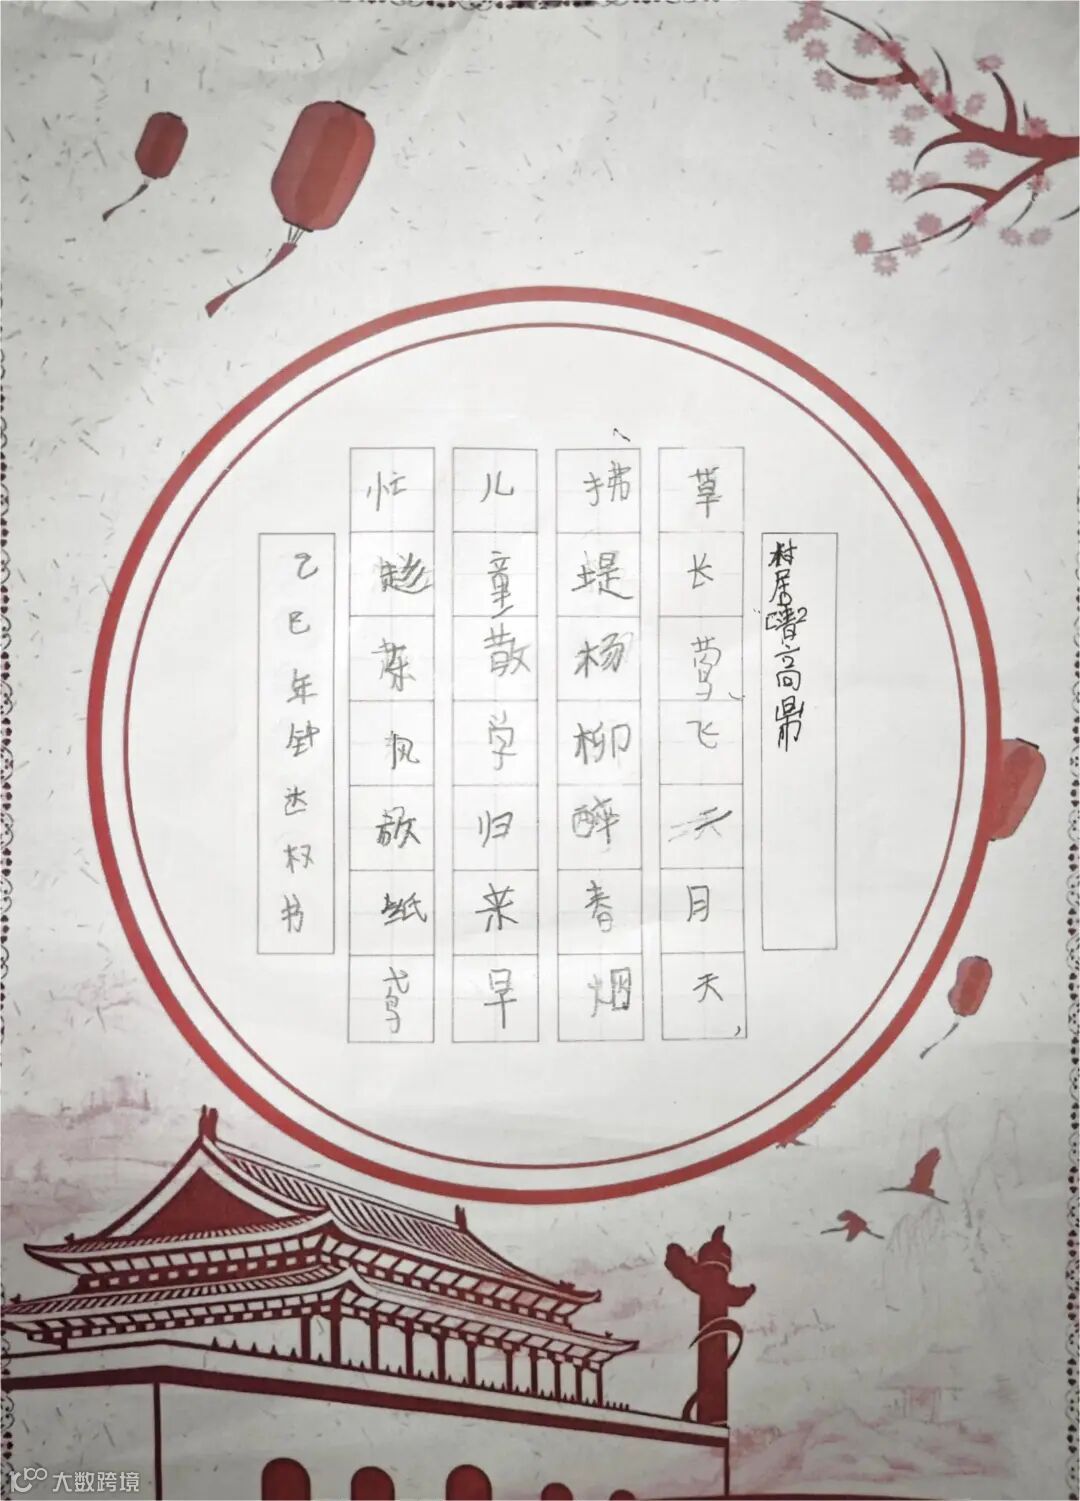 村居[清]高鼎
草长莺飞天月天,
拂堤杨柳醉春烟
儿童散学归来早
忙趁东风放纸鸢
乙巳年钟达权书
大数跨境